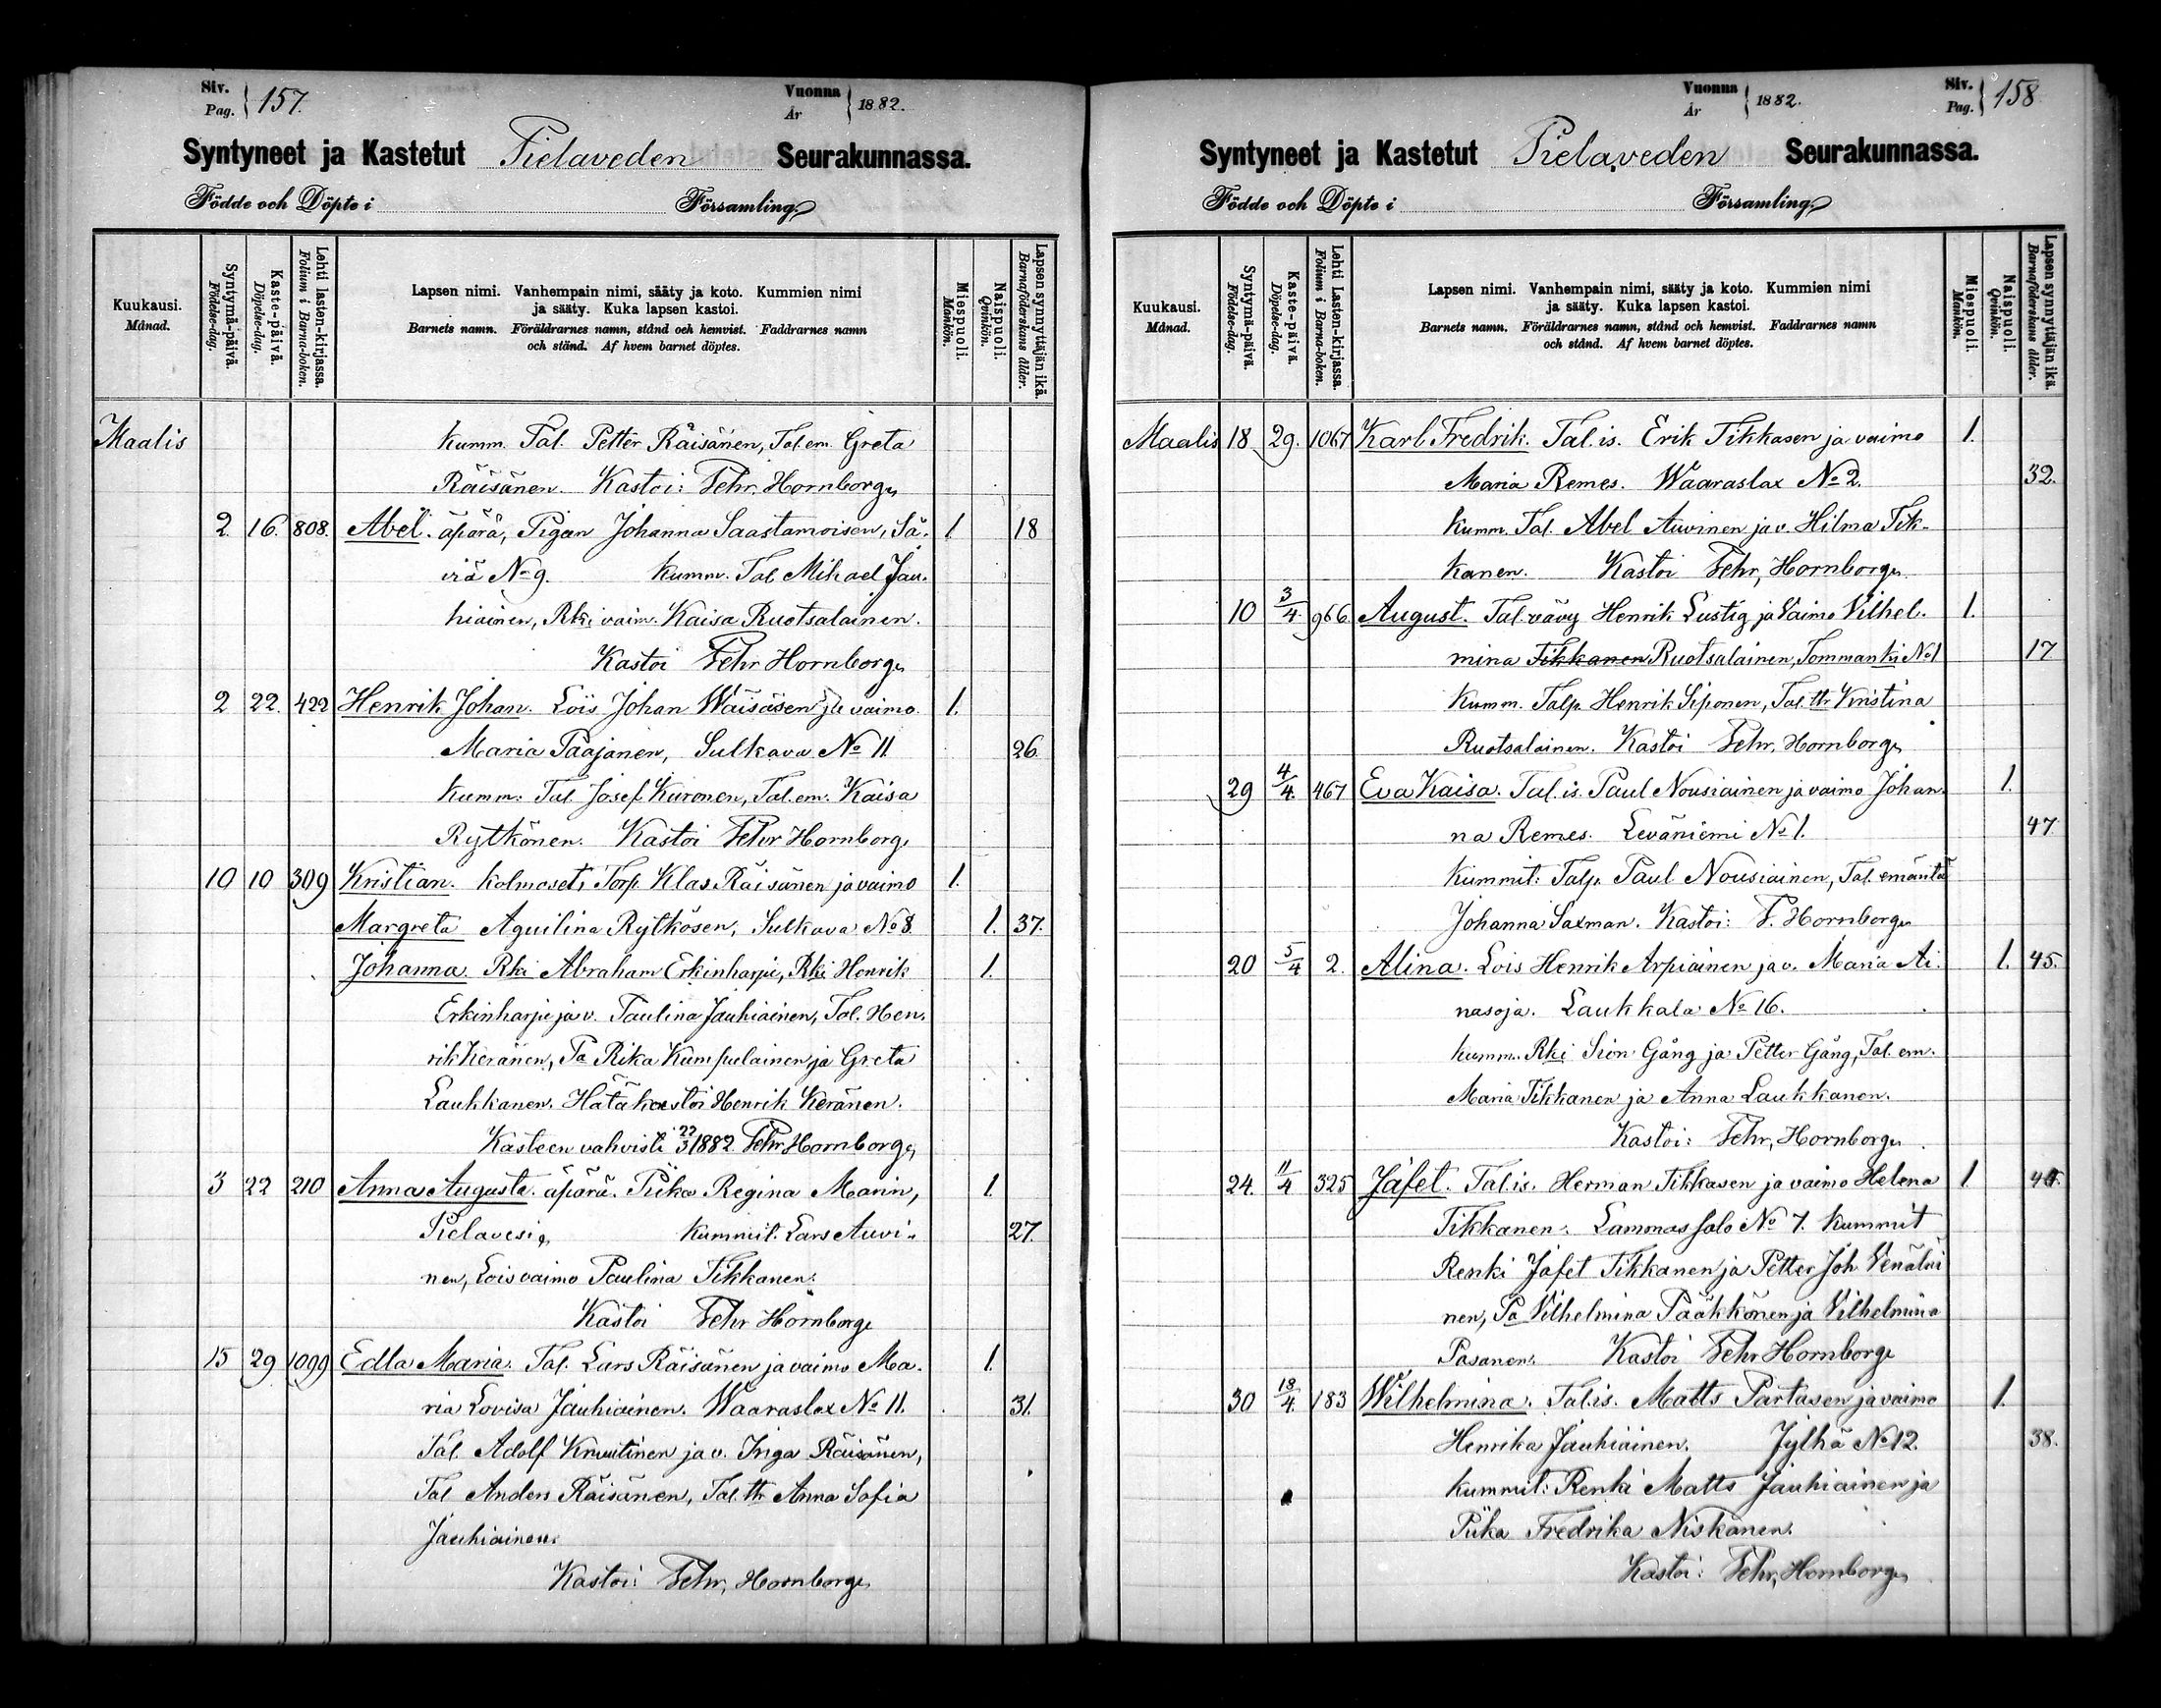 Siv.
Pag. 157.
Vuonna
År 1882.
Syntyneet ja Kastetut Pielaveden Seurakunnassa.
Födde och Döpte i Församling.
Kuukausi.
Månad.
Syntymä-päivä.
Födelse-dag.
Kaste-päivä.
Döpelse-dag.
Lehti lasten-kirjassa.
Folium i Barna-boken.
Lapsen nimi. Vanhempain nimi, sääty ja koto. Kummien nimi
ja sääty. Kuka lapsen kastoi.
Barnets namn. Föräldrarnes namn, stånd och hemvist. Faddrarnes namn
och stånd. Af hvem barnet döptes.
Miespuoli.
Mankön.
Naispuoli.
Qvinkön.
Lapsen synnyttäjän ikä.
Barnaföderskans ålder.
Maalis kumm. Tal. Petter Räisänen, Tal.em. Greta
Räisänen. Kastoi: Fehr. Hornborg
2. 16. 808. Abel. äpärä, Pigan Johanna Saastamoisen, Sä- 1. 18
viä No 9. kumm. Tal Mikael Jau-
hiainen, Rki vaim. Kaisa Ruotsalainen.
Kastoi Fehr Hornborg
2 22. 422 Henrik Johan. Lois Johan Wäisäsen ja vaimo 1.
Maria Paajanen, Sulkava No 11. 26.
Kumm: Tal Josef Kuronen, Tal.em. Kaisa
Rytkönen. Kastoi Fehr Hornborg
10 10 309 Kristian. kolmoset, Torp. Klas Räisänen ja vaimo 1.
Margreta Aguilina Rytkösen, Sulkava No 8. 1. 37.
Johanna. Rki Abraham Erkinharju, Rki Henrik 1.
Erkinharju ja v. Paulina Jauhiainen, Tal. Hen-
rik Keränen, Pa Rika Kumpulainen ja Greta
Laukkanen. Hätäkastoi Henrik Keränen.
Kasteen vahvisti 22/3 1882. Fehr Hornborg
3 22 210 Anna Augusta. äpärä. Piika Regina Marin, 1.
Pielavesi kummit: Lars Auvi- 27.
nen, Lois vaimo Paulina Tikkanen.
Kastoi Fehr Hornborg
15 29 1099 Edla Maria. Tal. Lars Räisänen ja vaimo Ma- 1.
ria Lovisa Jauhiainen. Waaraslax No 11. 31.
Tal. Adolf Knuutinen ja v. Inga Räisänen,
Tal Anders Räisänen, Tal. ttr Anna Sofia
Jauhiainen.
Kastoi: Fehr, Hornborg
Vuonna
År 1882.
Siv.
Pag. 158
Syntyneet ja Kastetut Pielaveden Seurakunnassa.
Födde och Döpte i Församling.
Kuukausi.
Månad.
Syntymä-päivä.
Födelse-dag.
Kaste-päivä.
Döpelse-dag.
Lehti Lasten-kirjassa.
Folium i Barna-boken.
Lapsen nimi. Vanhempain nimi, sääty ja koto. Kummien nimi
ja sääty. Kuka lapsen kastoi.
Barnets namn. Föräldrarnes namn, stånd och hemvist. Faddrarnes namn
och stånd. Af hvem barnet döptes.
Miespuoli.
Mankön.
Naispuoli.
Qvinkön.
Lapsen synnyttäjän ikä.
Barnaföderskans ålder.
Maalis 18 29. 1067 Karl Fredrik. Tal.is. Erik Tikkasen ja vaimo 1.
Maria Remes. Waaraslax No 2. 32.
Kumm. Tal. Abel Auvinen ja v. Hilma Tik-
kanen. Kastoi Fehr, Hornborg
10 3/4. 966. August. Tal. vävy Henrik Lustig ja Vaimo Vilhel- 1.
mina Tikkanen Ruotsalainen, Tommanki No 1 17
Kumm. Talp. Henrik Siponen, Tal. ttr Kristina
Ruotsalainen. Kastoi Fehr, Hornborg
29 4/4. 467 Eva Kaisa. Tal.is. Paul Nousiainen ja vaimo Johan- 1.
na Remes. Leväniemi No 1. 47
Kummit: Talp. Paul Nousiainen, Tal. emäntä
Johanna Saxman. Kastoi: F. Hornborg
20 5/4 2. Alina. Lois Henrik Arpiainen ja v. Maria Ai- 1. 45.
nasoja. Laukkala No 16.
kumm. Rki Sion Gång ja Petter Gång, Tal. em.
Maria Tikkanen ja Anna Laukkanen.
Kastoi: Fehr, Hornborg
24. 11/4 325 Jafet. Tal.is. Herman Tikkasen ja vaimo Helena 1.
Tikkanen. Lammassalo No 7. Kummit
Renki Jafet Tikkanen ja Petter Joh Venäläi
nen, Pa Vilhelmina Pääkkönen ja Vilhelmina
Pasanen. Kastoi Fehr Hornborg
30 18/4. 183 Wilhelmina. Tal.is. Matts Partasen ja vaimo 1.
Henrika Jauhiainen. Jylhä No 12. 38.
Kummit: Renki Matts Jauhiainen ja
Piika Fredrika Niskanen.
Kastoi: Fehr, Hornborg